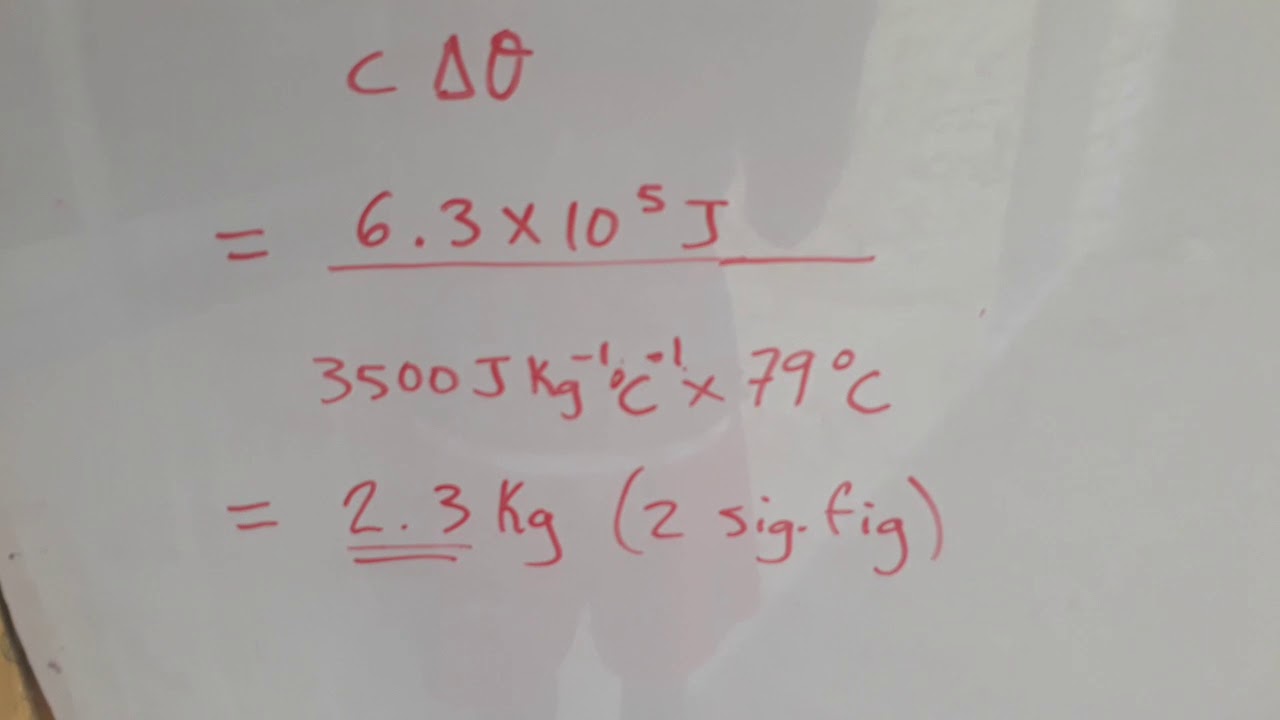 c Δθ
= 6.3 × 10⁵ J
3500 J Kg⁻¹ °C⁻¹ × 79 °C
= 2.3 Kg (2 sig. fig)